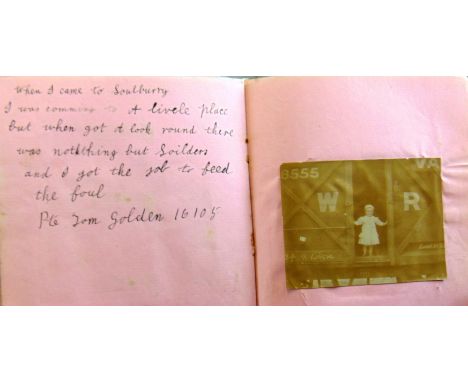 When I came to Soulburry
I was comming to A livele place
but when got A look round there
was notthing but Soilders
and I got the job to feed
the foul
Pte Tom Golden 16105
6555
W R